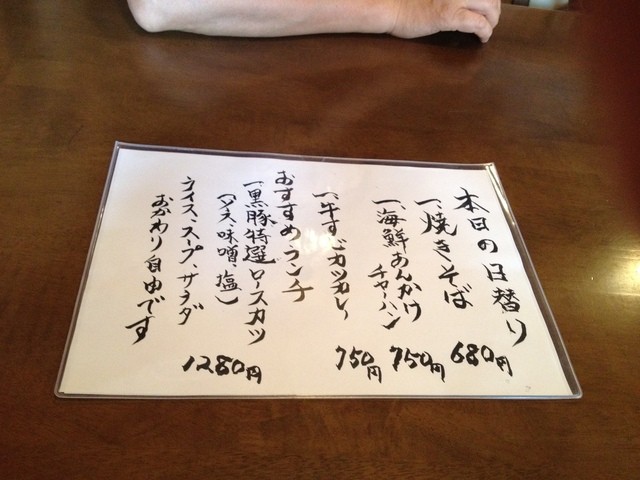 本日の日替り
一、焼きそば 680円
一、海鮮あんかけチャーハン 750円
一、牛すじカツカレー 750円
おすすめランチ
一、黒豚特選ロースカツ 1280円
(タネ、味噌、塩)
ライス、スープ、サラダ
おかわり自由です